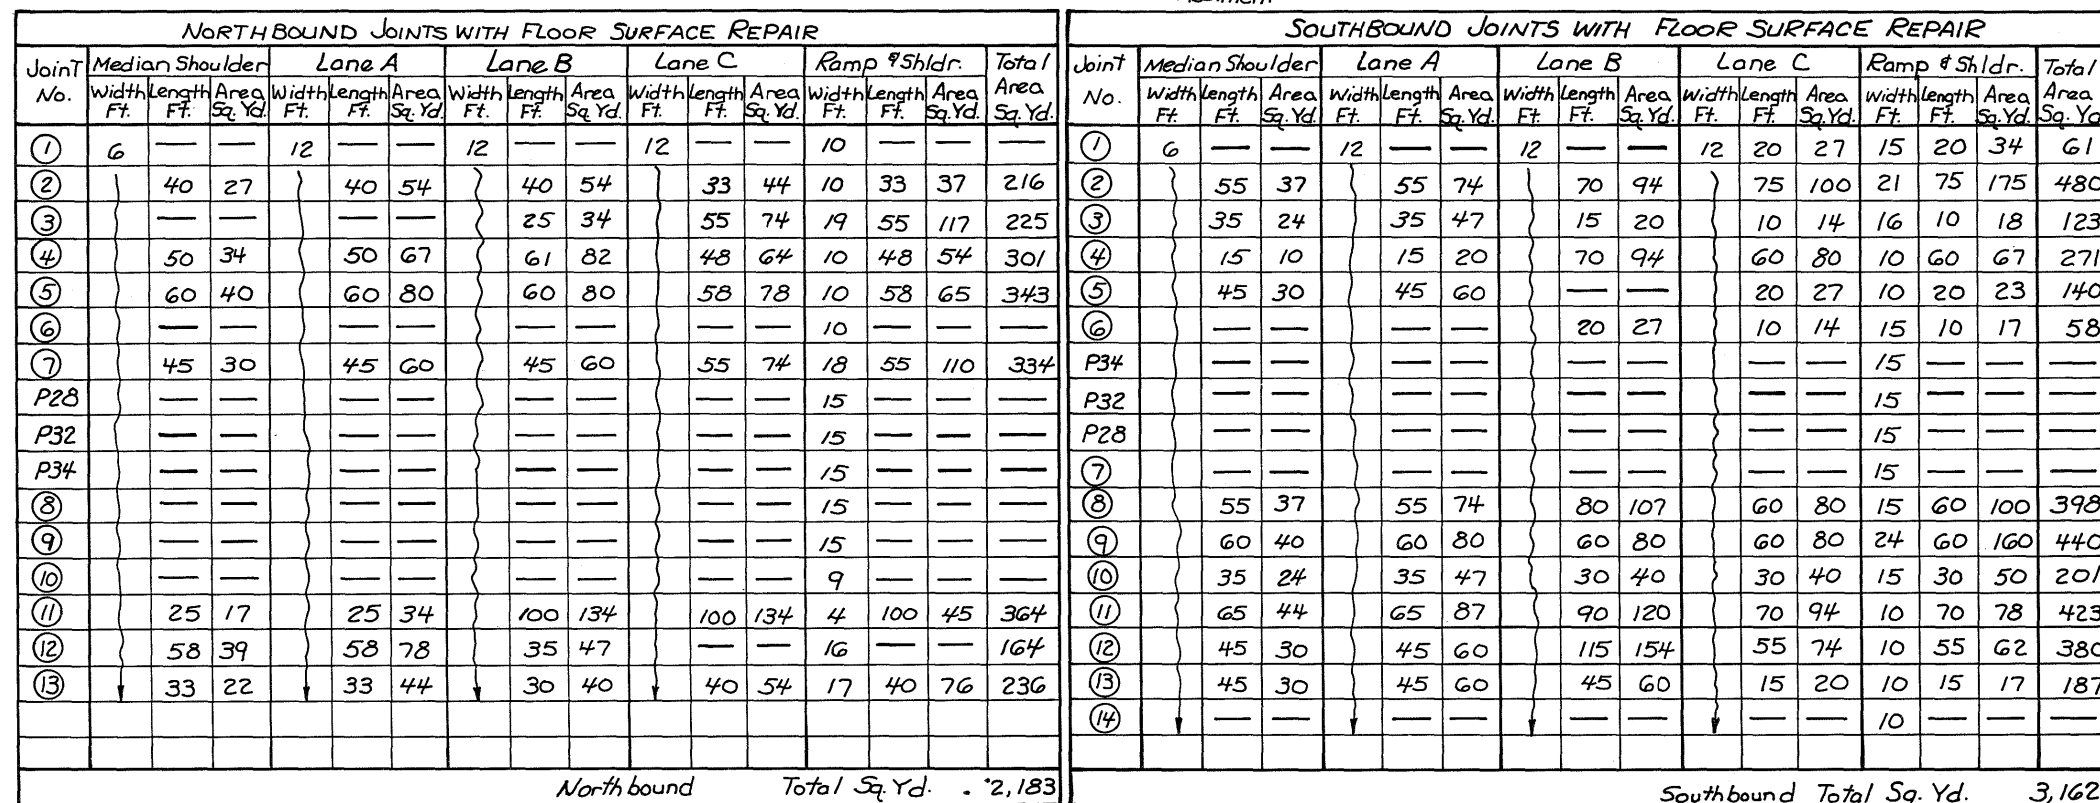 NORTHBOUND JOINTS WITH FLOOR SURFACE REPAIR
Joint No. Median Shoulder Lane A Lane B Lane C Ramp & Shldr. Total Area Sq. Yd.
Width Ft. Length Ft. Area Sq. Yd. Width Ft. Length Ft. Area Sq. Yd. Width Ft. Length Ft. Area Sq. Yd. Width Ft. Length Ft. Area Sq. Yd. Width Ft. Length Ft. Area Sq. Yd.
1 6 — — 12 — — 12 — — 12 — — 10 — — —
2 40 27 40 54 40 54 33 44 10 33 37 216
3 — — — — 25 34 55 74 19 55 117 225
4 50 34 50 67 61 82 48 64 10 48 54 301
5 60 40 60 80 60 80 58 78 10 58 65 343
6 — — — — — — — — 10 — — —
7 45 30 45 60 45 60 55 74 18 55 110 334
P28 — — — — — — — — 15 — — —
P32 — — — — — — — — 15 — — —
P34 — — — — — — — — 15 — — —
8 — — — — — — — — 15 — — —
9 — — — — — — — — 15 — — —
10 — — — — — — — — 9 — — —
11 25 17 25 34 100 134 100 134 4 100 45 364
12 58 39 58 78 35 47 — — 16 — — 164
13 33 22 33 44 30 40 40 54 17 40 76 236
Northbound Total Sq. Yd. 2,183
SOUTHBOUND JOINTS WITH FLOOR SURFACE REPAIR
Joint No. Median Shoulder Lane A Lane B Lane C Ramp & Shldr. Total Area Sq. Yd
Width Ft. Length Ft. Area Sq. Yd. Width Ft. Length Ft. Area Sq. Yd. Width Ft. Length Ft. Area Sq. Yd. Width Ft. Length Ft. Area Sq. Yd. Width Ft. Length Ft. Area Sq. Yd.
1 6 — — 12 — — 12 — — 12 20 27 15 20 34 61
2 55 37 55 74 70 94 75 100 21 75 175 480
3 35 24 35 47 15 20 10 14 16 10 18 123
4 15 10 15 20 70 94 60 80 10 60 67 271
5 45 30 45 60 — — 20 27 10 20 23 140
6 — — — — 20 27 10 14 15 10 17 58
P34 — — — — — — — — 15 — — —
P32 — — — — — — — — 15 — — —
P28 — — — — — — — — 15 — — —
7 — — — — — — — — 15 — — —
8 55 37 55 74 80 107 60 80 15 60 100 398
9 60 40 60 80 60 80 60 80 24 60 160 440
10 35 24 35 47 30 40 30 40 15 30 50 201
11 65 44 65 87 90 120 70 94 10 70 78 423
12 45 30 45 60 115 154 55 74 10 55 62 380
13 45 30 45 60 45 60 15 20 10 15 17 187
14 — — — — — — — — 10 — — —
Southbound Total Sq. Yd. 3,162